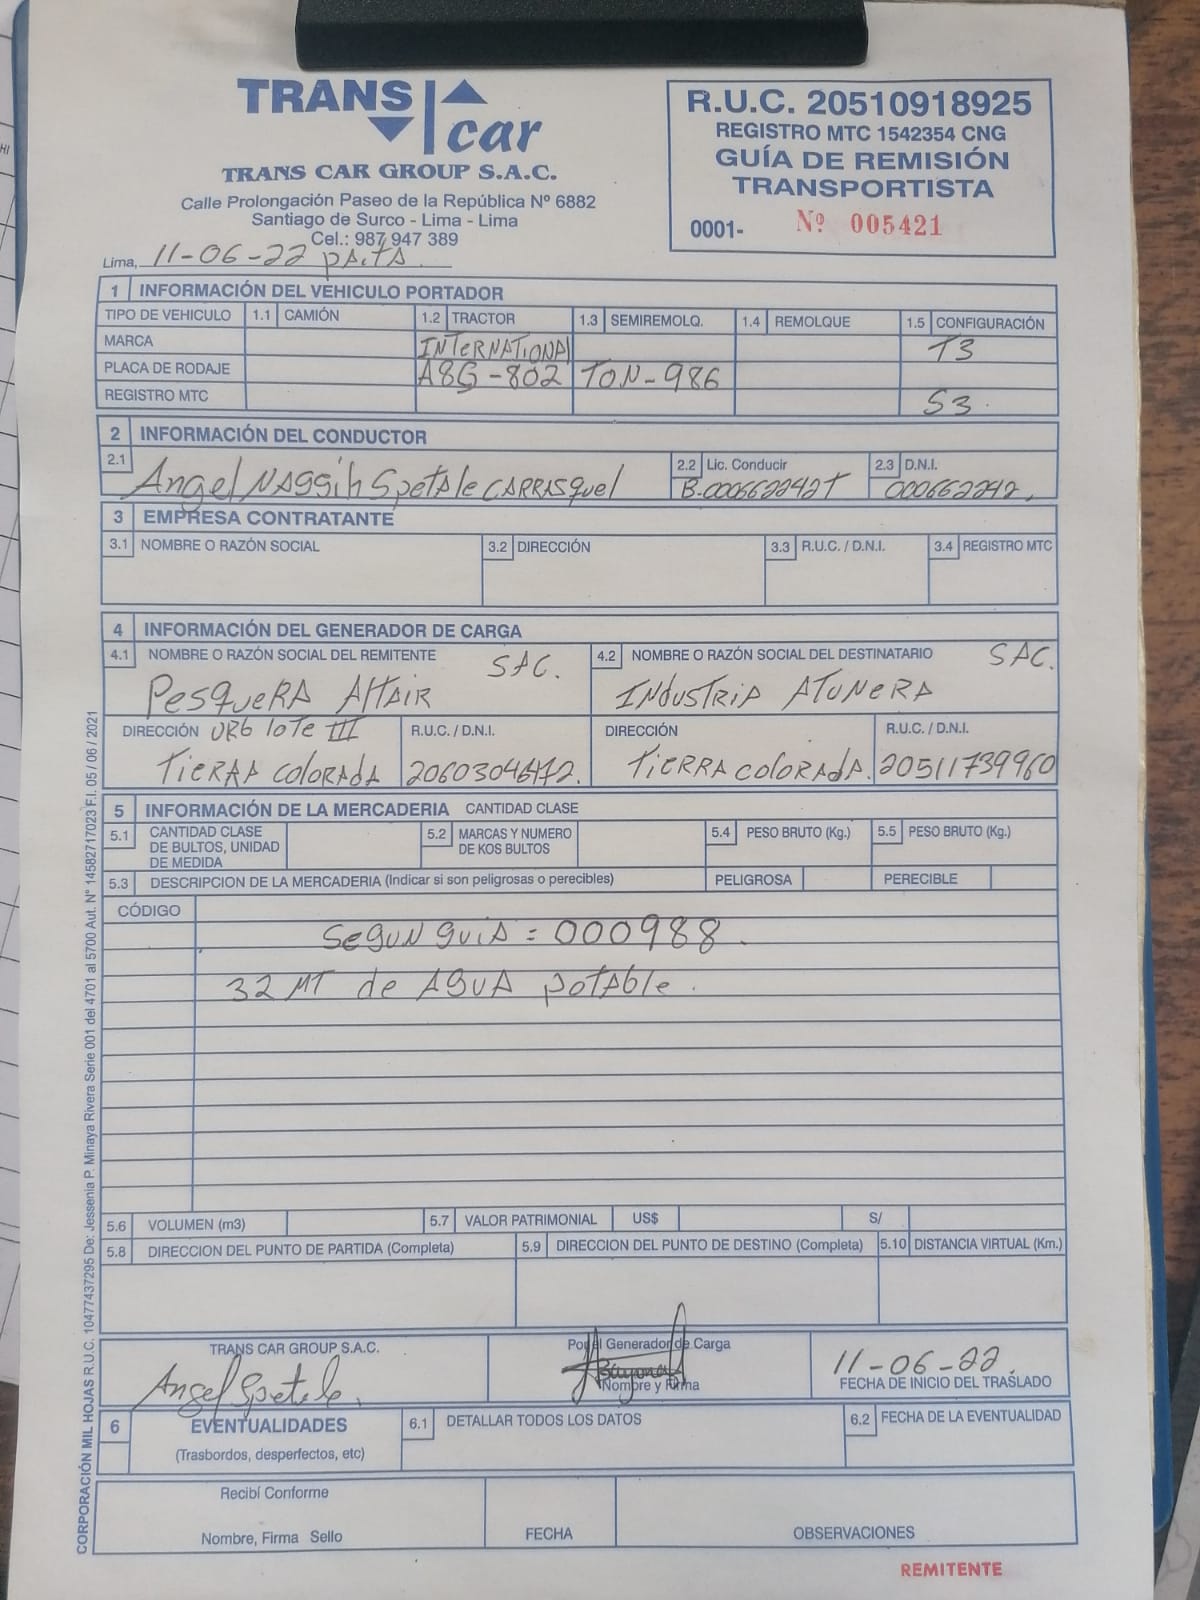 TRANS car
TRANS CAR GROUP S.A.C.
Calle Prolongación Paseo de la República Nº 6882
Santiago de Surco - Lima - Lima
Cel.: 987 947 389
R.U.C. 20510918925
REGISTRO MTC 1542354 CNG
GUÍA DE REMISIÓN
TRANSPORTISTA
0001- Nº 005421
Lima, 11-06-22 PAITA
1 INFORMACIÓN DEL VEHICULO PORTADOR
TIPO DE VEHICULO 1.1 CAMIÓN 1.2 TRACTOR 1.3 SEMIREMOLQ. 1.4 REMOLQUE 1.5 CONFIGURACIÓN
MARCA INTERNATIONAL T3
PLACA DE RODAJE A8G-802 TON-986
REGISTRO MTC S3
2 INFORMACIÓN DEL CONDUCTOR
2.1 2.2 Lic. Conducir 2.3 D.N.I.
Angel NASSih SpetAle CARRASquel B-000662242T 000662242
3 EMPRESA CONTRATANTE
3.1 NOMBRE O RAZÓN SOCIAL 3.2 DIRECCIÓN 3.3 R.U.C. / D.N.I. 3.4 REGISTRO MTC
4 INFORMACIÓN DEL GENERADOR DE CARGA
4.1 NOMBRE O RAZÓN SOCIAL DEL REMITENTE SAC. 4.2 NOMBRE O RAZÓN SOCIAL DEL DESTINATARIO SAC.
PesqueRA AltAIR INduStRiA ATUNeRA
DIRECCIÓN URB loTe III R.U.C. / D.N.I. DIRECCIÓN R.U.C. / D.N.I.
TieRRA ColoRAdA TieRRA ColoRAdA. 20511739960
5 INFORMACIÓN DE LA MERCADERIA CANTIDAD CLASE
5.1 CANTIDAD CLASE DE BULTOS, UNIDAD DE MEDIDA 5.2 MARCAS Y NUMERO DE KOS BULTOS 5.4 PESO BRUTO (Kg.) 5.5 PESO BRUTO (Kg.)
5.3 DESCRIPCION DE LA MERCADERIA (Indicar si son peligrosas o perecibles) PELIGROSA PERECIBLE
CÓDIGO
SeguN guiA = 000988.
32 MT de AguA potAble.
5.6 VOLUMEN (m3) 5.7 VALOR PATRIMONIAL US$ S/
5.8 DIRECCION DEL PUNTO DE PARTIDA (Completa) 5.9 DIRECCION DEL PUNTO DE DESTINO (Completa) 5.10 DISTANCIA VIRTUAL (Km.)
TRANS CAR GROUP S.A.C. Por el Generador de Carga 11-06-22.
Angel Spetale. Nombre y Firma FECHA DE INICIO DEL TRASLADO
6 EVENTUALIDADES 6.1 DETALLAR TODOS LOS DATOS 6.2 FECHA DE LA EVENTUALIDAD
(Trasbordos, desperfectos, etc)
Recibí Conforme
Nombre, Firma Sello FECHA OBSERVACIONES
REMITENTE
CORPORACIÓN MIL HOJAS R.U.C. 10477437295 De: Jessenia P. Minaya Rivera Serie 001 del 4701 al 5700 Aut. Nº 14582717023 F.I. 05 / 06 / 2021